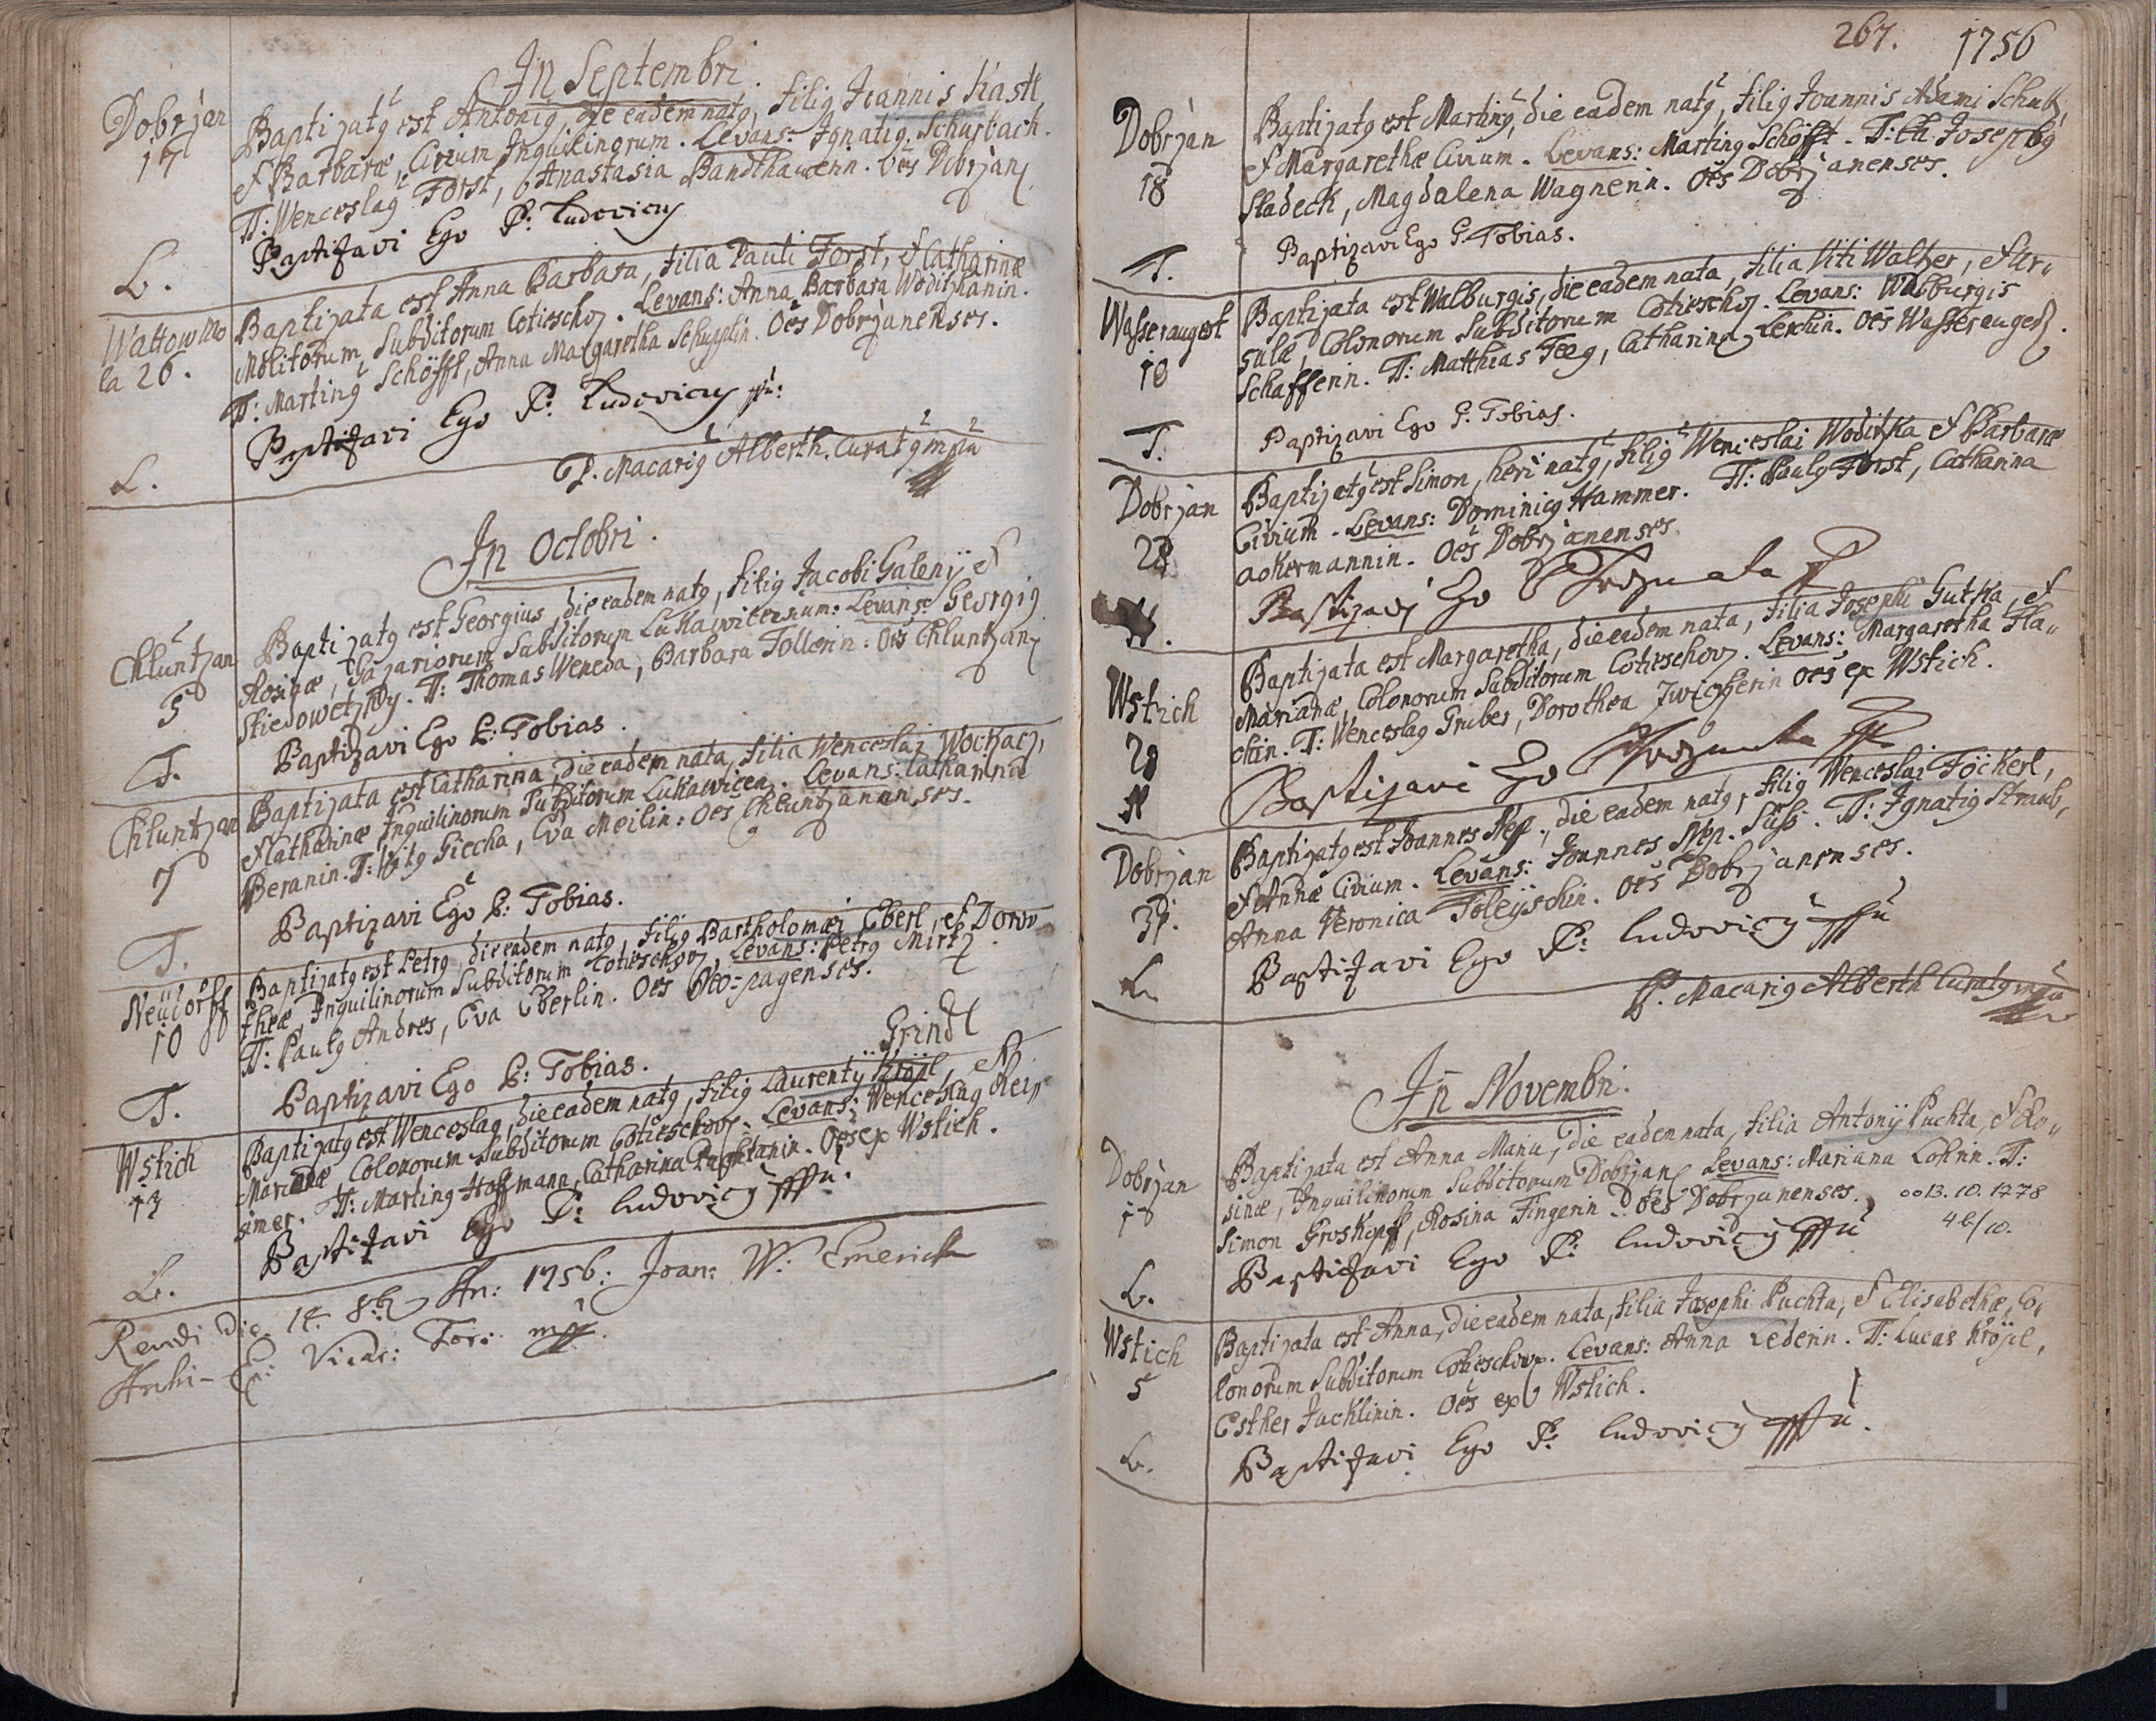 In Septembri.
Dobrzan
17
Baptizatq est Antoniq, die eadem natq, filiq Joannis Kastl
et Barbaræ, Civium Inquilinorum. Levans: Ignatiq Schurback.
TT: Wenceslaq Forst, Anastasia Bandthauerin. oēs Dobrzan
Baptizavi Ego P: Ludovicus
L.
Wattow Mo
la 26.
Baptizata est Anna Barbara, filia Pauli Forst, et Catharinæ
Molitorum Subditorum Cotieschov. Levans: Anna Barbara Woditzkanin.
TT: Martinq Schöfft, Anna Margaretha Schupplin. Oēs Dobrzanenses.
Baptizavi Ego P: Ludovicus
L.
P. Macariq Alberth. Curatq mpa
In Octobri.
Chluntzan
5
Baptizatq est Georgius, die eadem natq, filiq Jacobi Galenij et
Rosinæ, Subditorum Lukawitensium: Levans: Georgiq
TT: Thomas Weneda, Barbara Tollerin: Oēs Chluntzan
Baptizavi Ego P: Tobias.
T.
Chluntzan
7
Baptizata est Catharina, die eadem nata, filia Wenceslai Wockacz,
et Catharinæ Inquilinorum Subditorum Lukawicen. Levans: Catharina
Beranin. TT: Vitq Siecha, Eva Meilin: Oes Chluntzannses.
Baptizavi Ego P: Tobias.
T.
Neüdörff
10
Baptizatq est Petrq, die eadem natq, filiq Bartholomæi Eberl, et Doro
theæ, Inquilinorum Subditorum Cotieschov. Levans: Petrq Mirtz
TT: Paulq Andres, Eva Eberlin. Oēs Neo-pagenses.
Baptizavi Ego P: Tobias.
T.
Grindl
Wstich
13
Baptizatq est Wenceslaq, die eadem natq, filiq Laurentij Kröjl, et
Marianæ Colonorum Subditorum Cotieschov. Levans: Wenceslaq Rei
simer. TT: Martinq Hoffmann, Catharina Puchtanin. Oēs ex Wstich.
Baptizavi Ego P: Ludovicq
L.
Die 14. 8:b An: 1756: Joan: W: Emerich
Vicar: For: mp.
267. 1756
Dobrzan
18
Baptizatq est Martinq, die eadem natq, filiq Joannis Adami Schultz,
et Margarethæ Civium. Levans: Martinq Schöfft. TT: Josephq
Sladeck, Magdalena Wagnerin. Oēs Dobrzanenses.
Baptizavi Ego P. Tobias.
T.
Wasseraugest
18
Baptizata est Walburgis, die eadem nata, filia Viti Waltzer, et Ur,,
sulæ, Colonorum Subditorum Cotieschov. Levans: Walburgis
Schafferin. TT: Matthias Feeg, Catharina Lerchin. oēs Wasseraugez.
Baptizavi Ego P. Tobias.
T.
Dobrzan
28
Baptizatq est Simon, heri natq, filiq Wenceslai Woditzka et Barbaræ
Civium. Levans: Dominicq Hammer. TT: Paulq Forst, Catharina
Ackermannin. Oēs Dobrzanenses
Baptizavi Ego
Wstich
29
Baptizata est Margaretha, die eadem nata, filia Josephi Gutka, et
Marianæ, Colonorum Subditorum Cotieschov. Levans: Margaretha Fla,,
chin. TT: Wenceslaq Gruber, Dorothea Zwicherin oēs ex Wstich.
Baptizavi Ego
Dobrzan
31.
Baptizatq est Joannes Nep:, die eadem natq, filiq Wenceslai Föckerl,
et Annæ Civium. Levans: Joannes Nep. Süss. TT: Ignatiq Straub,
Anna Veronica Toleijschin. oēs Dobrzanenses.
Baptizavi Ego P: Ludovicq
L.
P. Macariq Alberth Curatq mpa
In Novembri.
Dobrzan
1
Baptizata est Anna Maria, die eadem nata, filia Antonij Puchta, et Ro,,
sinæ, Inquilinorum Subditorum Dobrzan. Levans: Mariana Lohrin. TT:
Simon Groskopff, Rosina Fingerin. Oēs Dobrzanenses. oo 13. 10. 1778
Baptizavi Ego P: Ludovicq
L.
Wstich
5
Baptizata est Anna, die eadem nata, filia Josephi Puchta, et Elisabethæ, Co,
lonorum Subditorum Cotieschov. Levans: Anna Lederin. TT: Lucas Kröjel,
Esther Jacklinin. Oēs ex Wstich.
Baptizavi Ego P: Ludovicq
L.